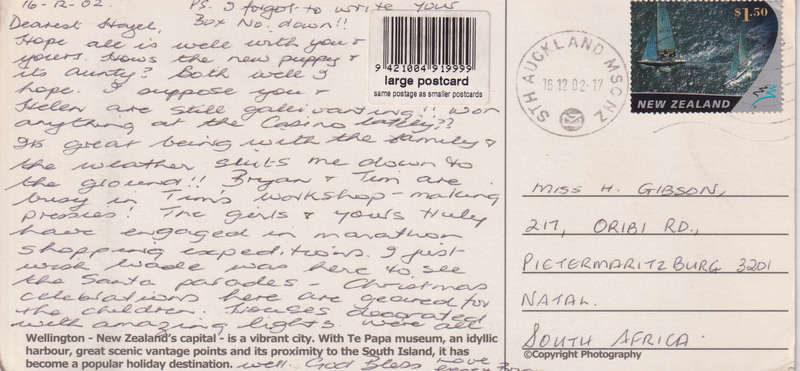 16-12-02.
P.S. I forgot to write your
Box No. down!!
Dearest Hazel,
Hope all is well with you &
yours. Hows the new puppy &
its aunty? Both well I
hope. I suppose you &
Helen are still gallivanting!! Won
anything at the Casino lately??
Its great being with the family &
the weather suits me down to
the ground!! Bryan & Tim are
busy in Tim's workshop - making
pressies! The girls & yours truly
have engaged in marathon
shopping expeditions. I just
wish Wade was here to see
the Santa parades - Christmas
celebrations here are geared for
the children. Houses decorated
with amazing lights. We're all
well. God Bless Love
9 421004 919999
large postcard
same postage as smaller postcards
STH AUCKLAND MSC NZ
16 12 02-17
$1.50
NEW ZEALAND
MISS H. GIBSON,
217, ORIBI RD.,
PIETERMARITZBURG 3201
NATAL.
SOUTH AFRICA.
Wellington - New Zealand's capital - is a vibrant city. With Te Papa museum, an idyllic
harbour, great scenic vantage points and its proximity to the South Island, it has
become a popular holiday destination.
©Copyright Photography